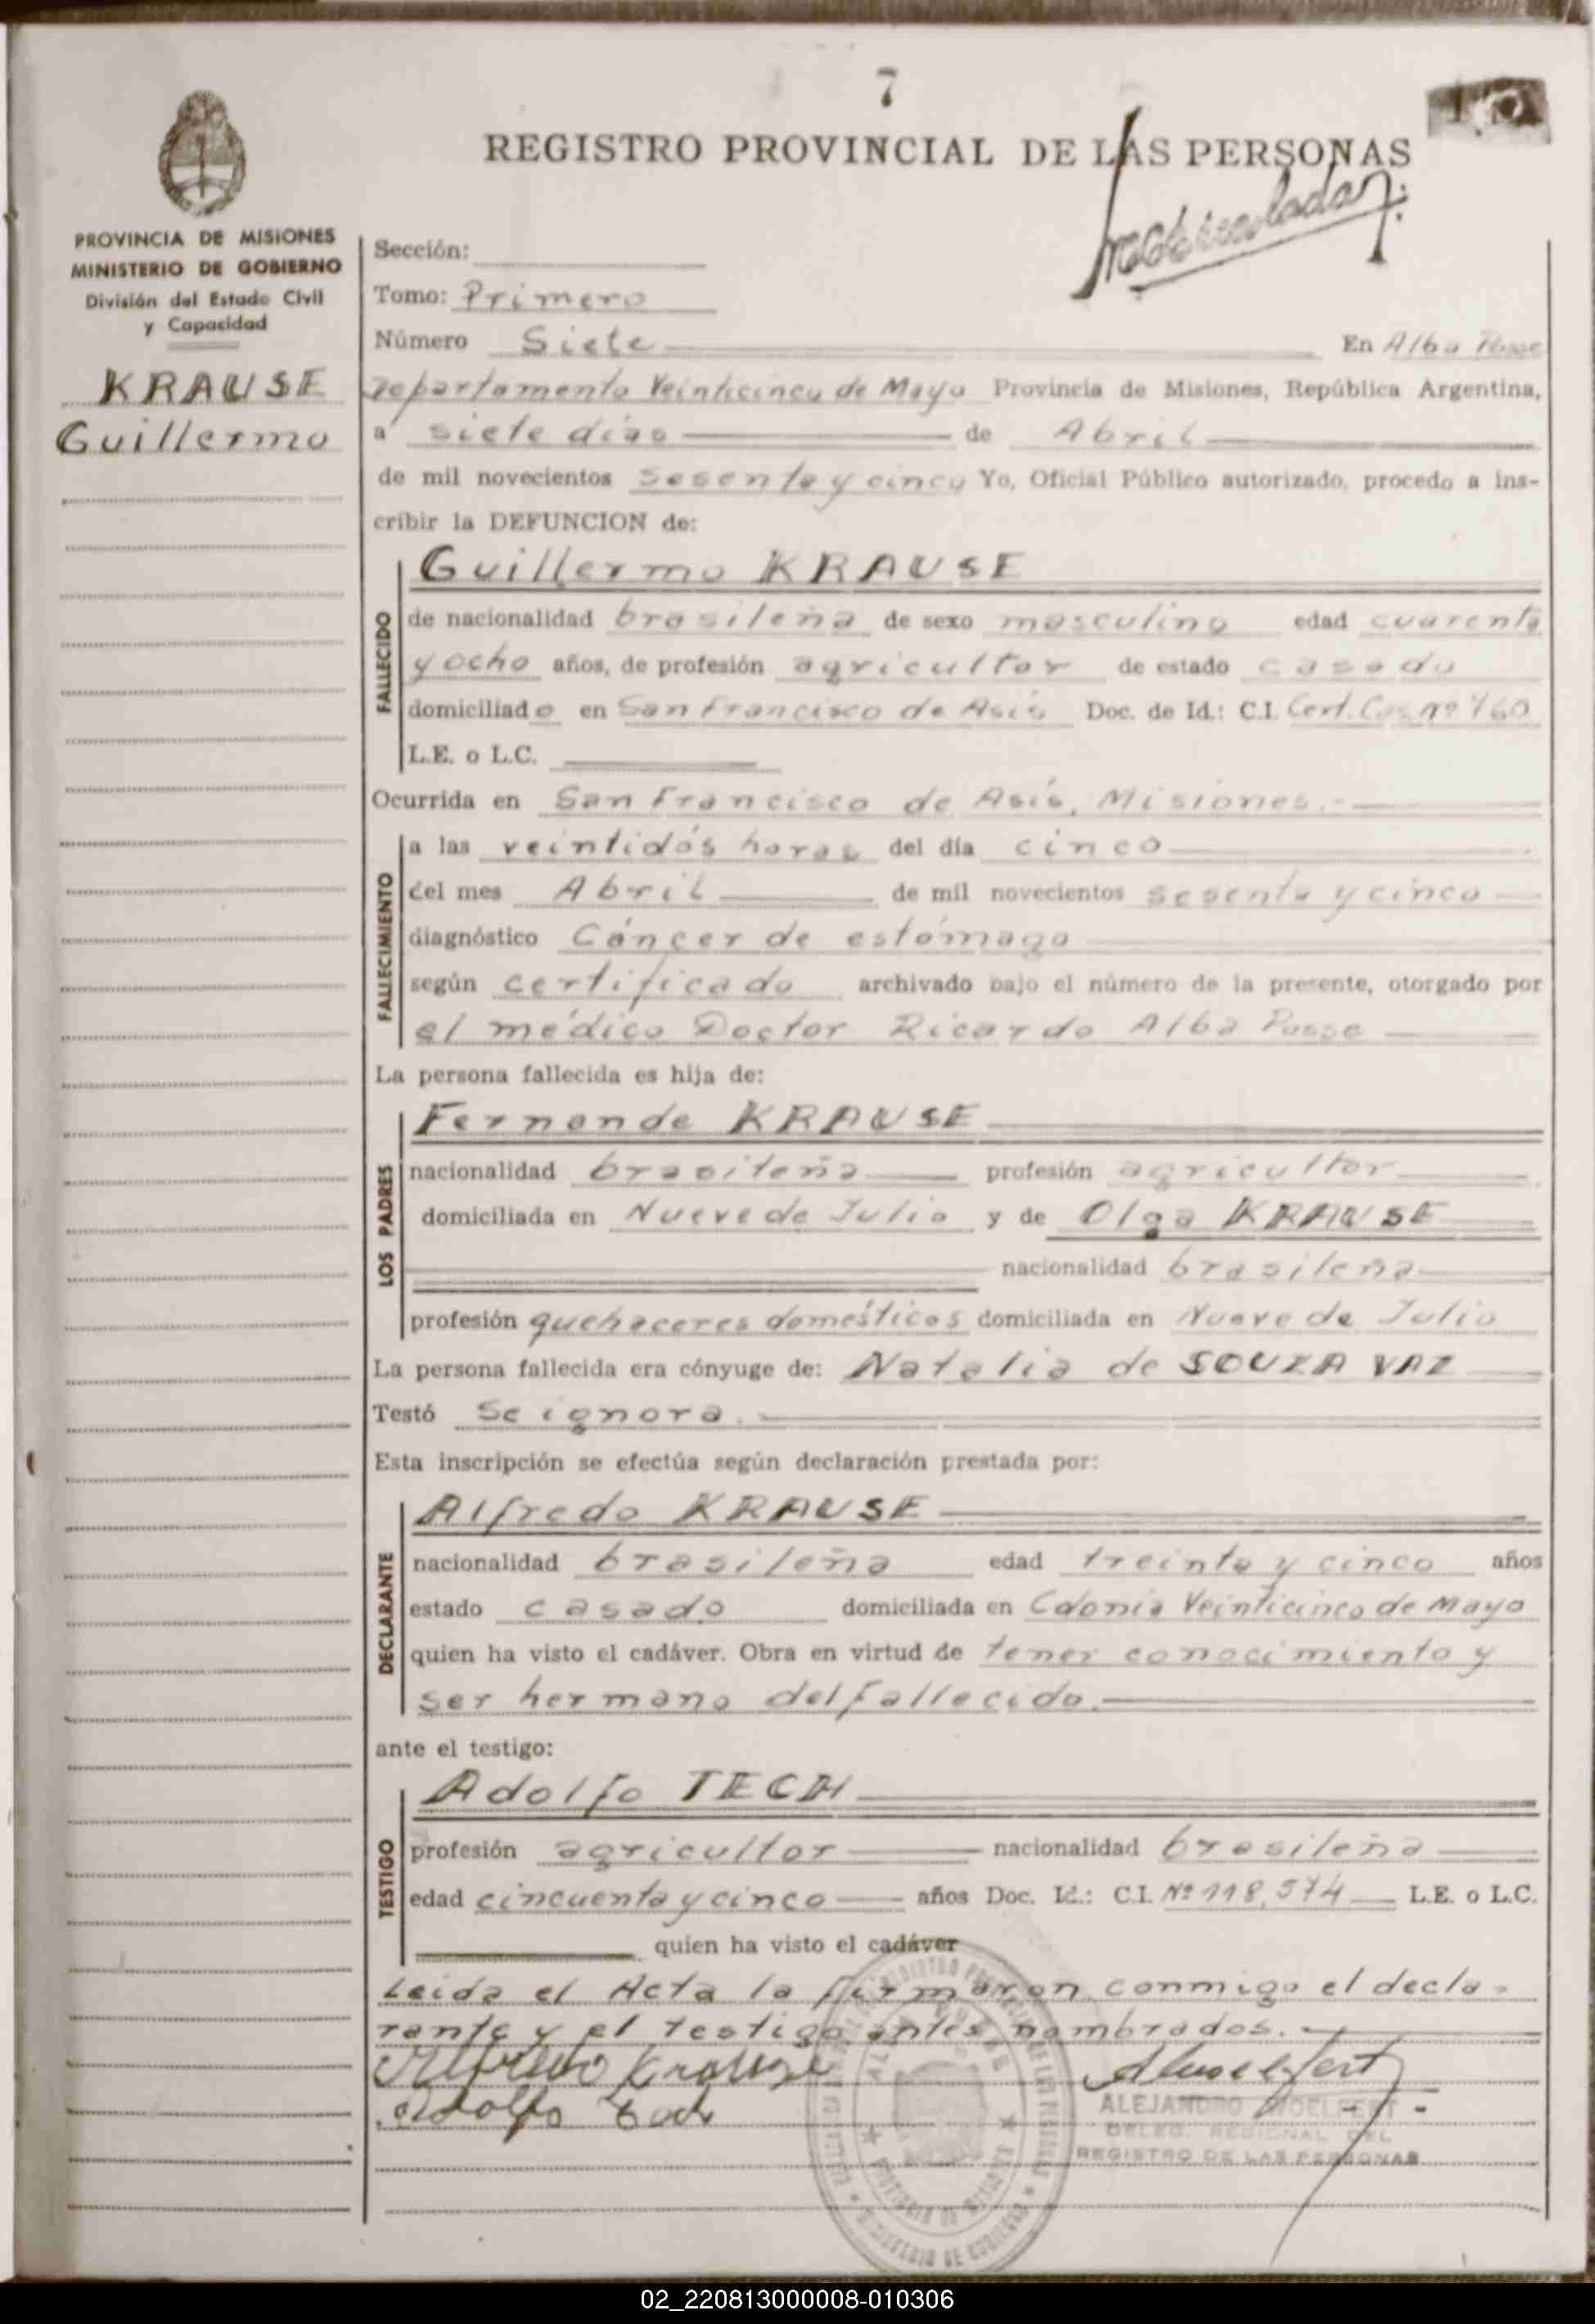 7
REGISTRO PROVINCIAL DE LAS PERSONAS
PROVINCIA DE MISIONES
MINISTERIO DE GOBIERNO
División del Estado Civil
y Capacidad
KRAUSE
Guillermo
Sección:
Tomo: Primero
Número Siete En Alba Posse
Departamento Veinticinco de Mayo Provincia de Misiones, República Argentina,
a siete días de Abril
de mil novecientos sesenta y cinco Yo, Oficial Público autorizado, procedo a ins-
cribir la DEFUNCION de:
FALLECIDO
Guillermo KRAUSE
de nacionalidad brasileña de sexo masculino edad cuarenta
y ocho años, de profesión agricultor de estado casado
domiciliado en San Francisco de Asís Doc. de Id.: C.I. Cert. Cas. nº 760
L.E. o L.C.
Ocurrida en San Francisco de Asís, Misiones.-
FALLECIMIENTO
a las veintidós horas del día cinco
del mes Abril de mil novecientos sesenta y cinco
diagnóstico Cáncer de estómago
según certificado archivado bajo el número de la presente, otorgado por
el médico Doctor Ricardo Alba Posse
La persona fallecida es hija de:
LOS PADRES
Fernando KRAUSE
nacionalidad brasileña profesión agricultor
domiciliada en Nueve de Julio y de Olga KRAUSE
nacionalidad brasileña
profesión quehaceres domésticos domiciliada en Nueve de Julio
La persona fallecida era cónyuge de: Natalia de SOUZA VAZ
Testó Se ignora.
Esta inscripción se efectúa según declaración prestada por:
DECLARANTE
Alfredo KRAUSE
nacionalidad brasileña edad treinta y cinco años
estado casado domiciliada en Colonia Veinticinco de Mayo
quien ha visto el cadáver. Obra en virtud de tener conocimiento y
ser hermano del fallecido.
ante el testigo:
TESTIGO
Adolfo TECH
profesión agricultor nacionalidad brasileña
edad cincuenta y cinco años Doc. Id.: C.I. Nº 118,574 L.E. o L.C.
quien ha visto el cadáver
Leída el Acta la firmaron conmigo el decla-
rante y el testigo antes nombrados.
Alfredo Krause
Adolfo Tech
ALEJANDRO WOELFERT
DELEG. REGIONAL DEL
REGISTRO DE LAS PERSONAS
02_220813000008-010306